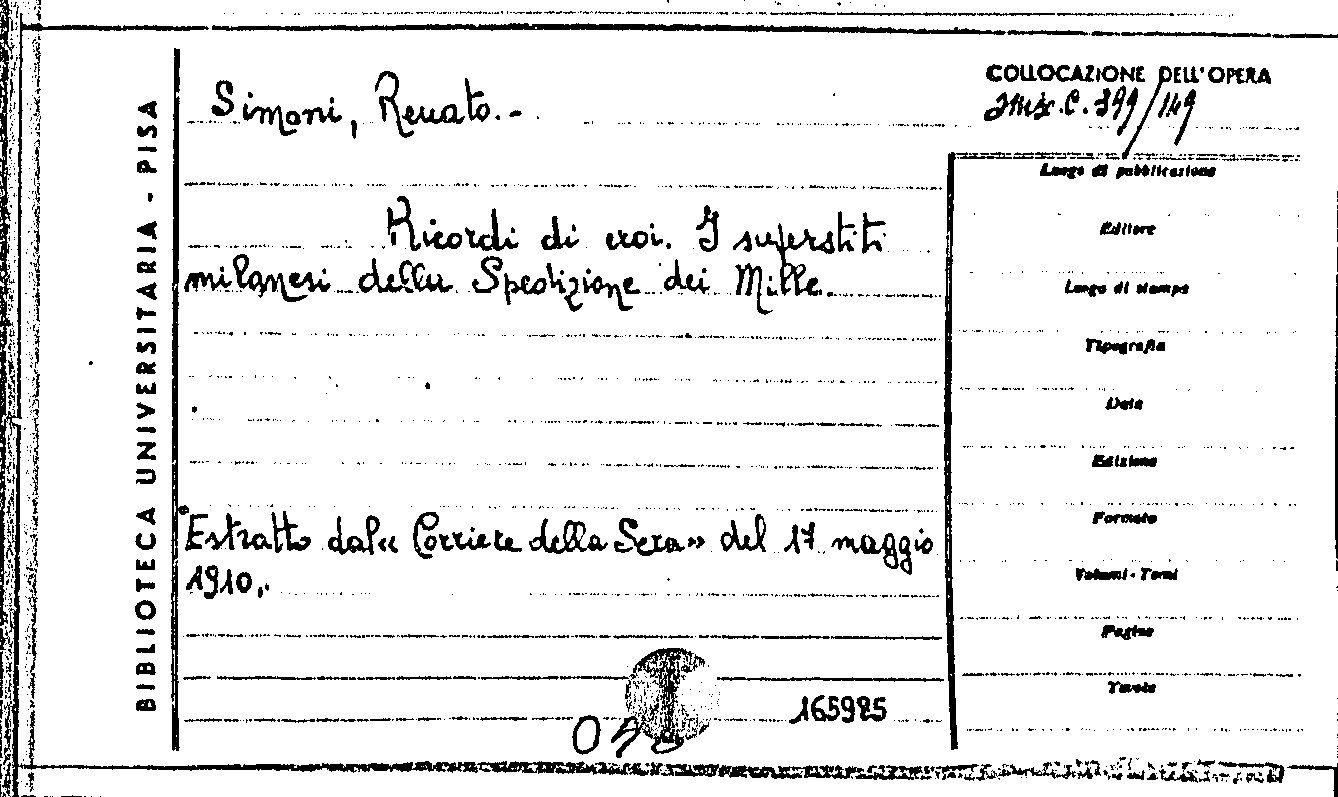 BIBLIOTECA UNIVERSITARIA - PISA
COLLOCAZIONE DELL'OPERA
Misc. C. 399/149
Simoni, Renato.-
Ricordi di eroi. I superstiti
milanesi della Spedizione dei Mille.
Estratto dal «Corriere della Sera» del 17 maggio
1910.
165985
Luogo di pubblicazione
Editore
Luogo di stampa
Tipografia
Data
Edizione
Formato
Volumi - Tomi
Pagine
Tavole